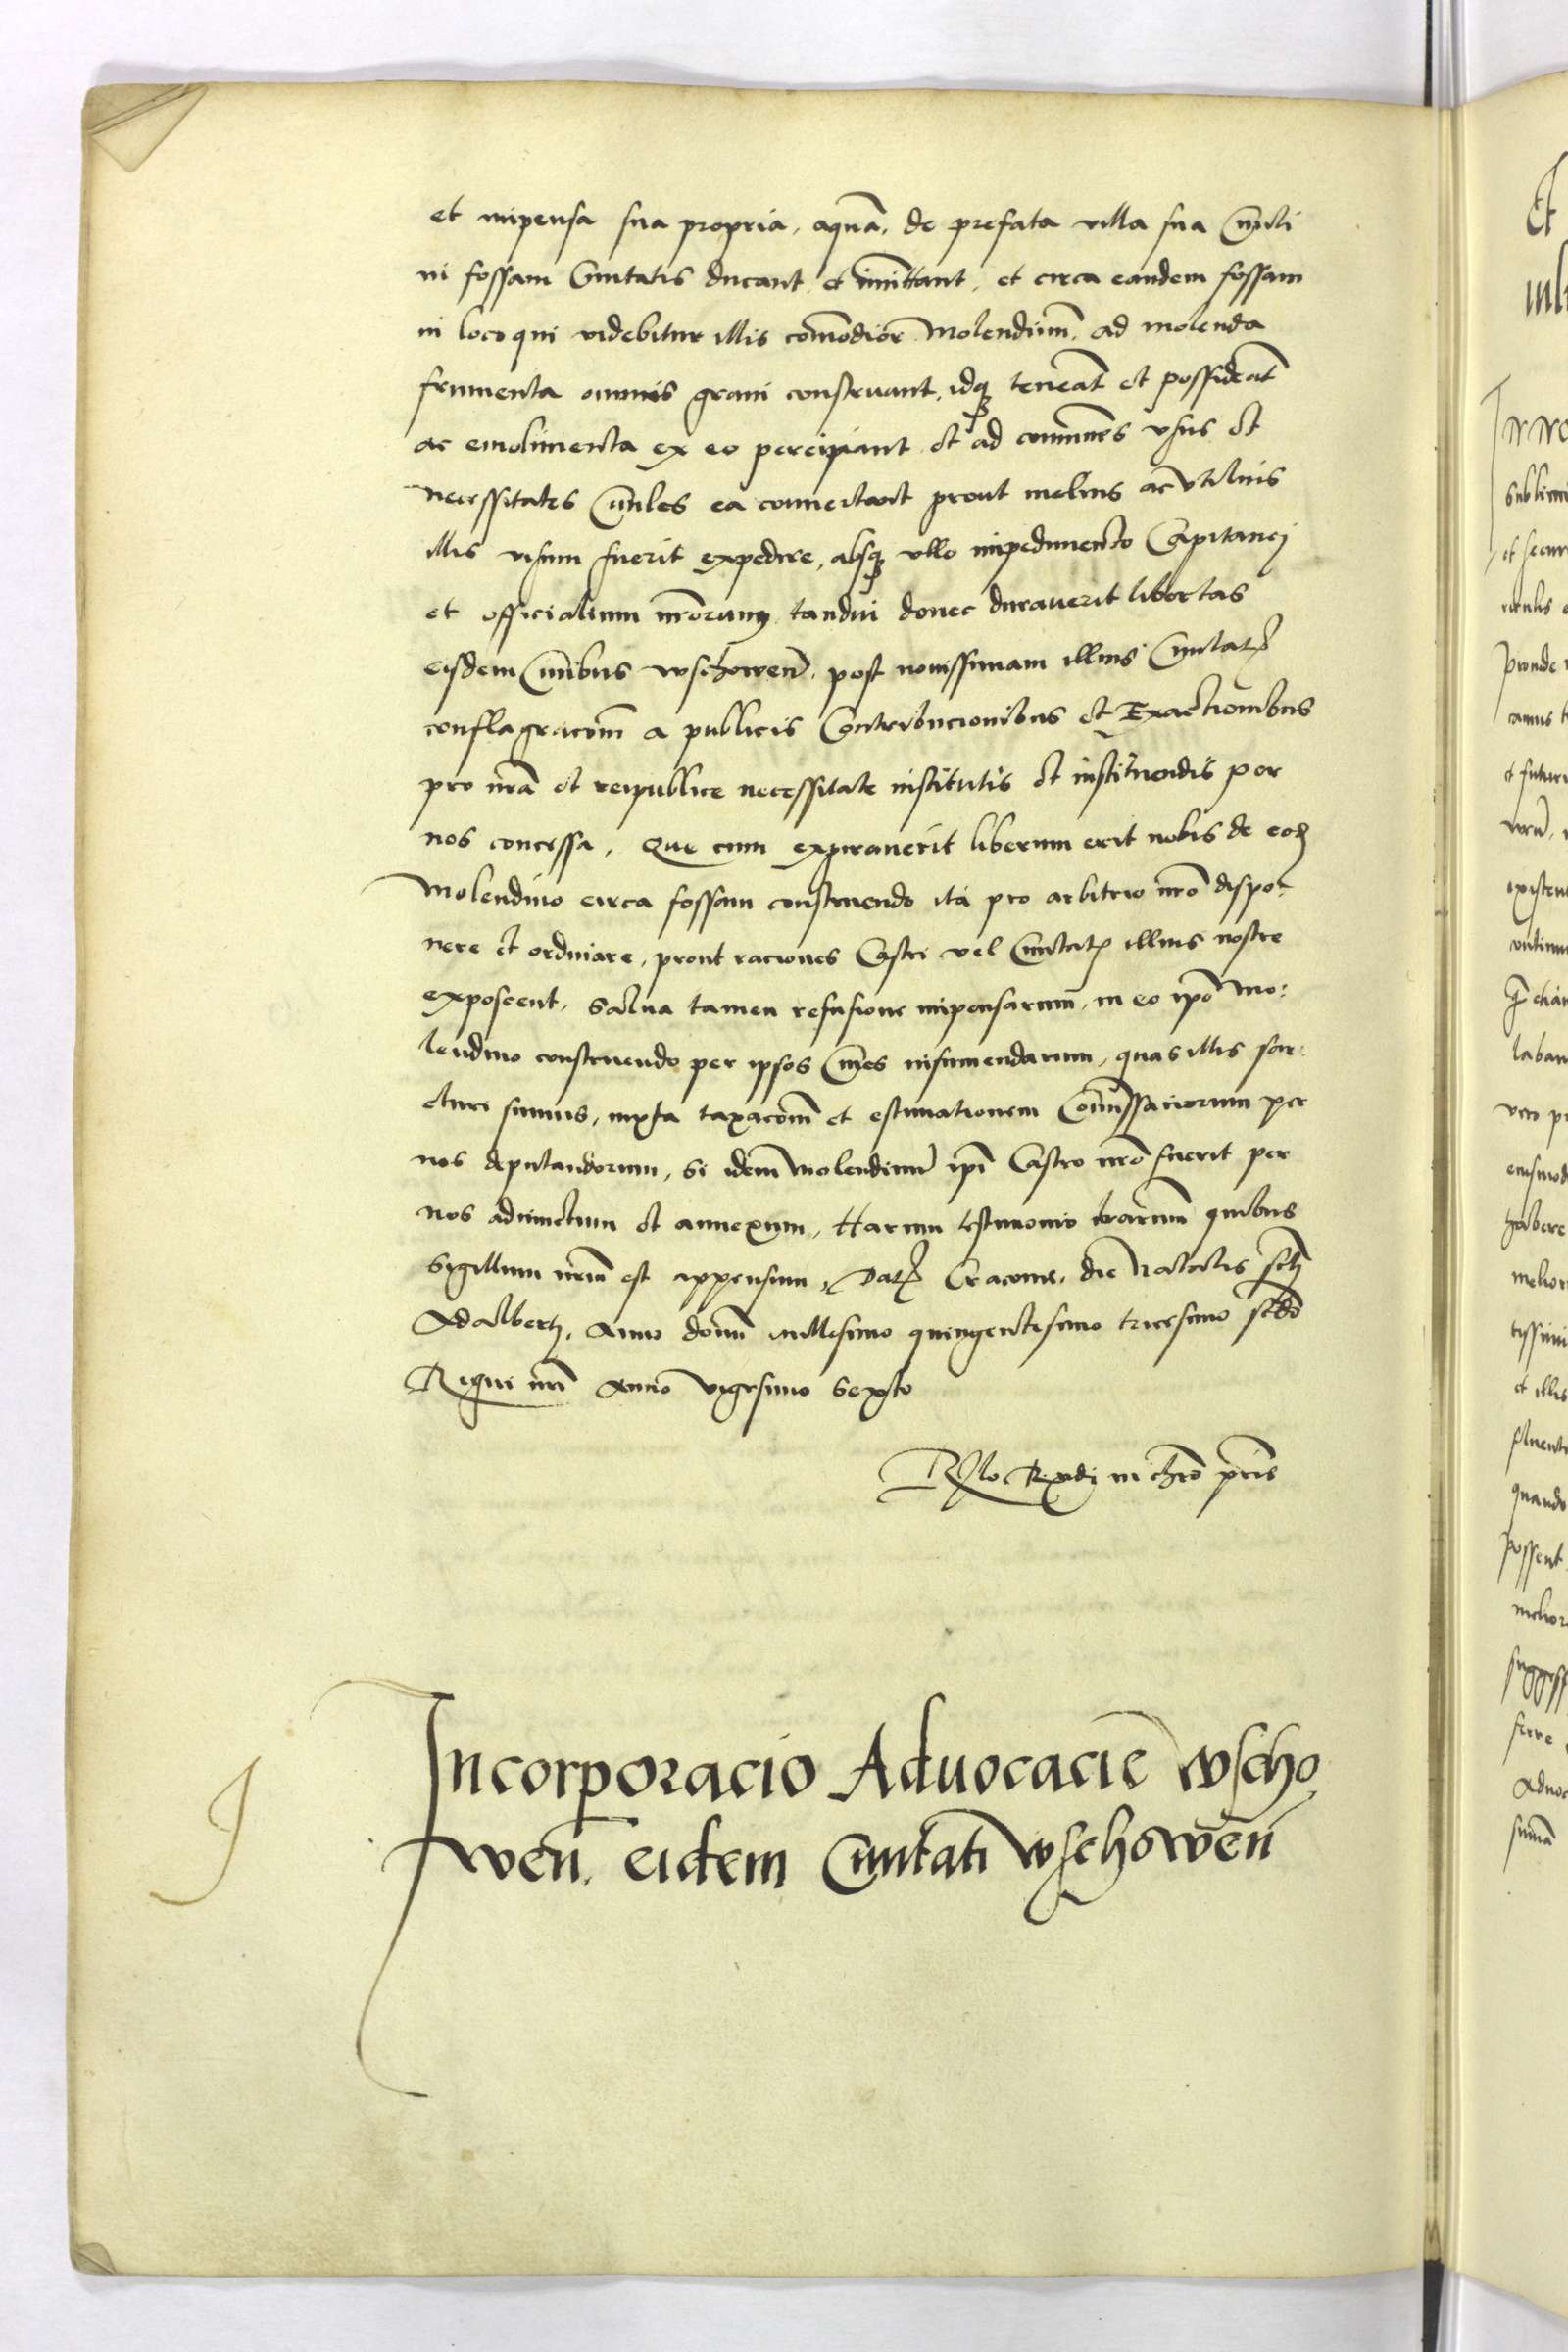 et impensa sua propria, aquã, de prefata villa sua Ciuili
in fossam Ciuitatis ducant et im̃ittant, et circa eandem fossam
in loco qui videbitur illis com̃odior Molendinũ, ad molenda
frumenta omnis grani construant, idq̨ teneãt et possideãt
ac emolimenta ex eo percipiant et ad com̃unes vsus et
necessitates Ciuiles ea conuertant prout melius ac vtilius
illis visum fuerit expedire, absq̨ vllo impedimento Capitanej
et officialium nr̃orum, tandiu donec durauerit libertas
eisdem Ciuibus wschowen̄, post nouissimam illius Ciuitatꝭ
conflagraciõm a publicis Contribucionibus et Exactionibus
pro nr̃a et reipublice necessitate institutis et instituendis per
nos concessa, Que cum expirauerit liberum erit nobis de eodȝ
Molendino circa fossam construendo ita pro arbitrio nr̃o dispo-
nere et ordinare, prout raciones Castri vel Ciuitatꝭ illius nostre
exposcent, Salua tamen refusione impensarum, in eo ip̃o Mo:
lendino construendo per ipsos Ciues insumendarum, quas illis sar:
cturi sumus, iuxta taxaciõm et estimationem Com̃issariorum per
nos deputandorum, Si idem Molendinũ ip̃i Castro nr̃o fuerit per
nos adiunctum et annexum, Harum testimonio lr̃arum quibus
Sigillum nr̃um est appensum, Datꝭ Cracouie, die Natalis sctj
Adalbertj, Anno domĩ millesimo quingentesimo tricesimo sc̃do
Regni nr̃i Anno vigesimo Sexto
in
Incorporacio Aduocacie wscho
wen̄, eidem Ciuitati wschowen̄